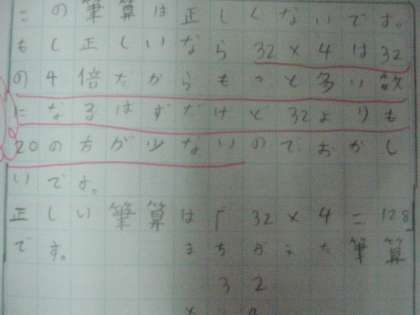 この筆算は正しくないです。
もし正しいなら32×4は32
の4倍だからもっと多い数
になるはずだけど32よりも
20の方が少ないのでおかし
いです。
正しい筆算は「32×4=128」
です。 まちがえた筆算
32
×